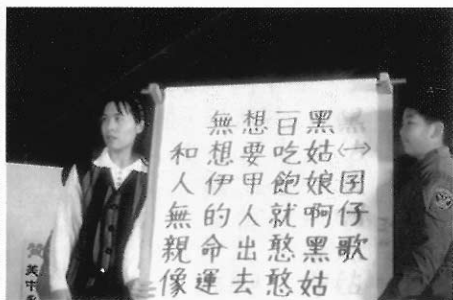 (一)囝仔歌
黑姑娘啊黑姑
百吃飽就憨憨
想要甲人出去
無想伊的命運
和人無親像
美中